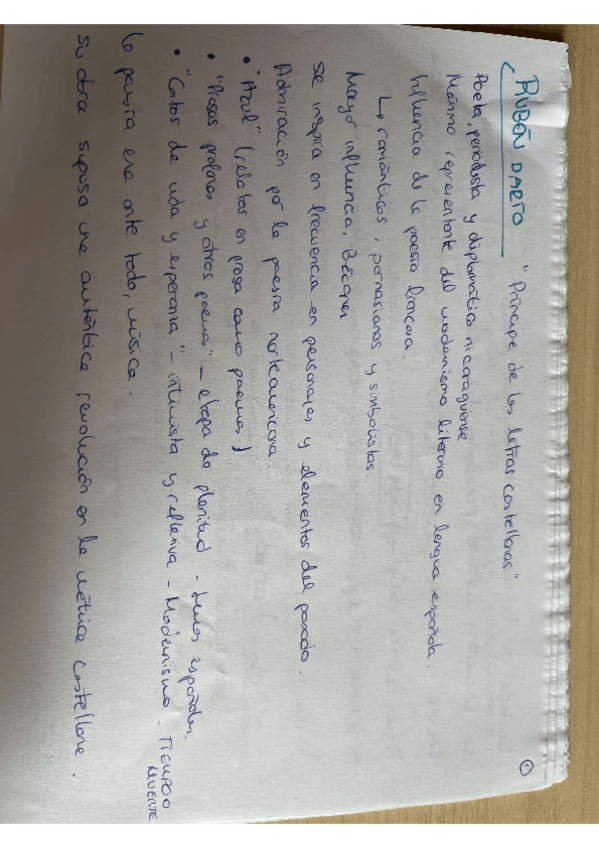 RUBÉN DARÍO "Príncipe de las letras castellanas"
①
Poeta, periodista y diplomático nicaraguense
Máximo representante del modernismo literario en lengua española.
Influencia de la poesía francesa.
↳ románticos, parnasianos y simbolistas.
Mayor influencia, Bécquer
Se inspira en frecuencia en personajes y elementos del pasado.
Admiración por la poesía norteamericana.
• "Azul" (relatos en prosa como poemas)
• "Prosas profanas y otros poemas" - etapa de plenitud - temas españoles.
• "Cantos de vida y esperanza" - intimista y reflexiva - Modernismo. TIEMPO MUERTE
la poesía era ante todo, música.
Su obra supuso una auténtica revolución en la métrica castellana.